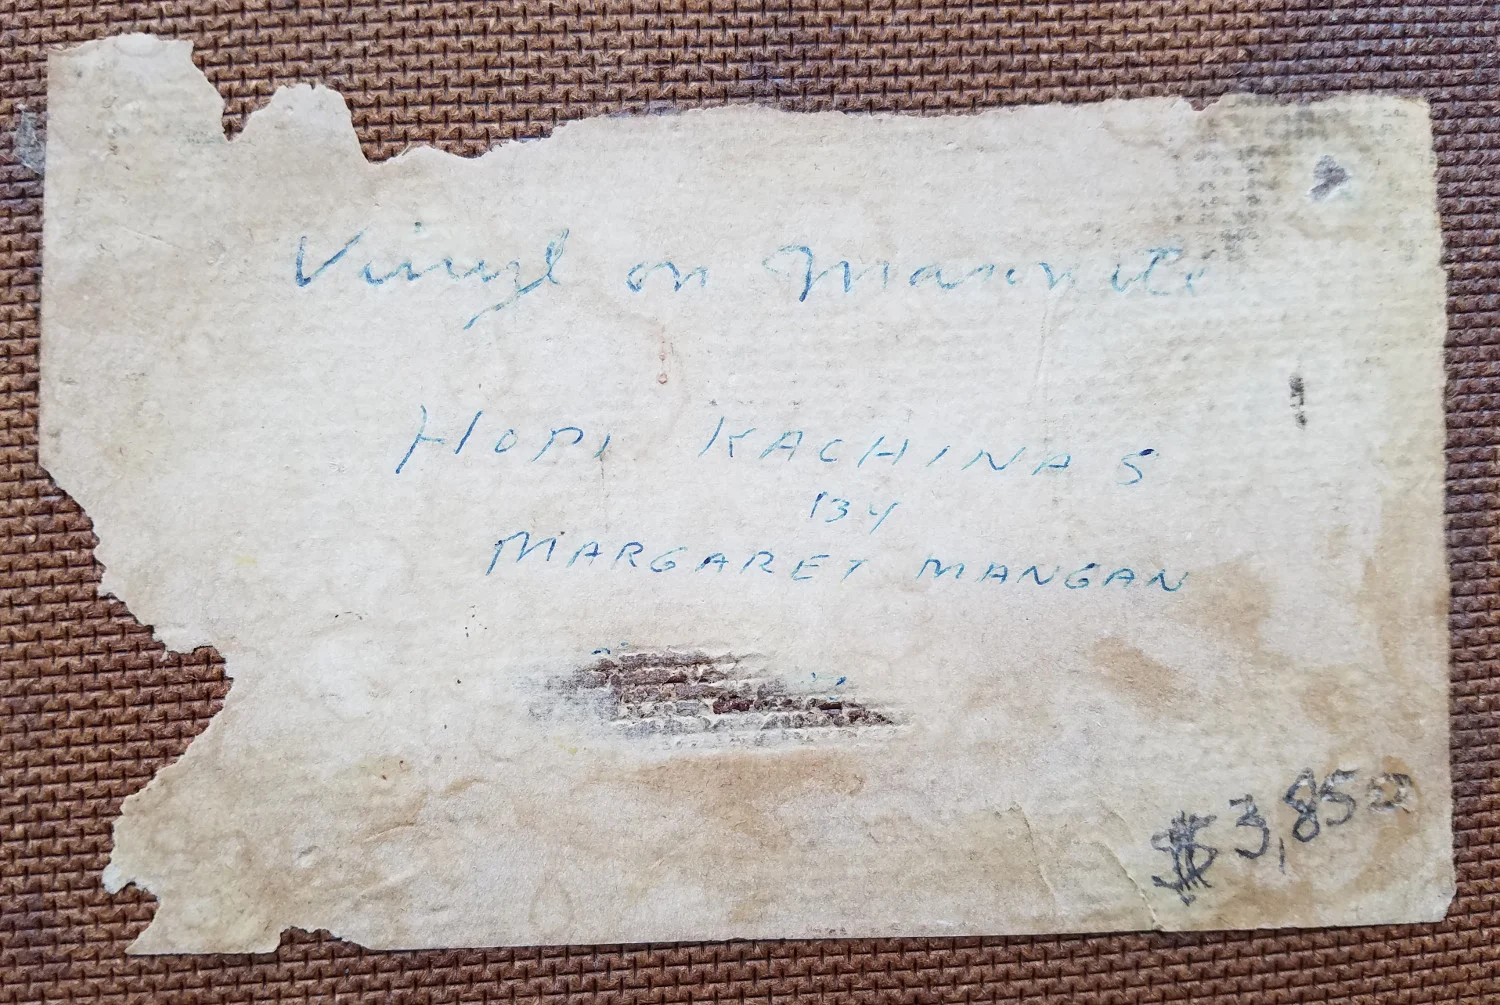 Vinyl on Masonite
HOPI KACHINAS
BY
MARGARET MANGAN
$3,850